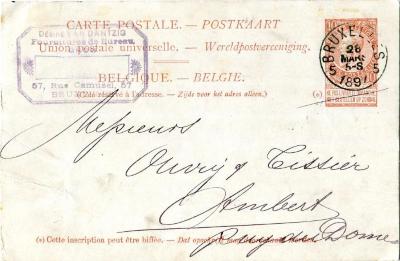 CARTE POSTALE. — POSTKAART
Union postale universelle. — Wereldpostvereeniging.
BELGIQUE. — BELGIE.
(Côté réservé à l'adresse. — Zijde voor het adres alleen.)
DÉSIRÉ VAN DANTZIG
Fournitures de Bureau,
57, Rue Camusel, 57
BRUX
10
BRUXEL
5 5
26
MARS
5-S
189
(*)
Messieurs
Ouvry & Tissier
Ambert
Puy du Dôme
(*) Cette inscription peut être biffée. — Dat op